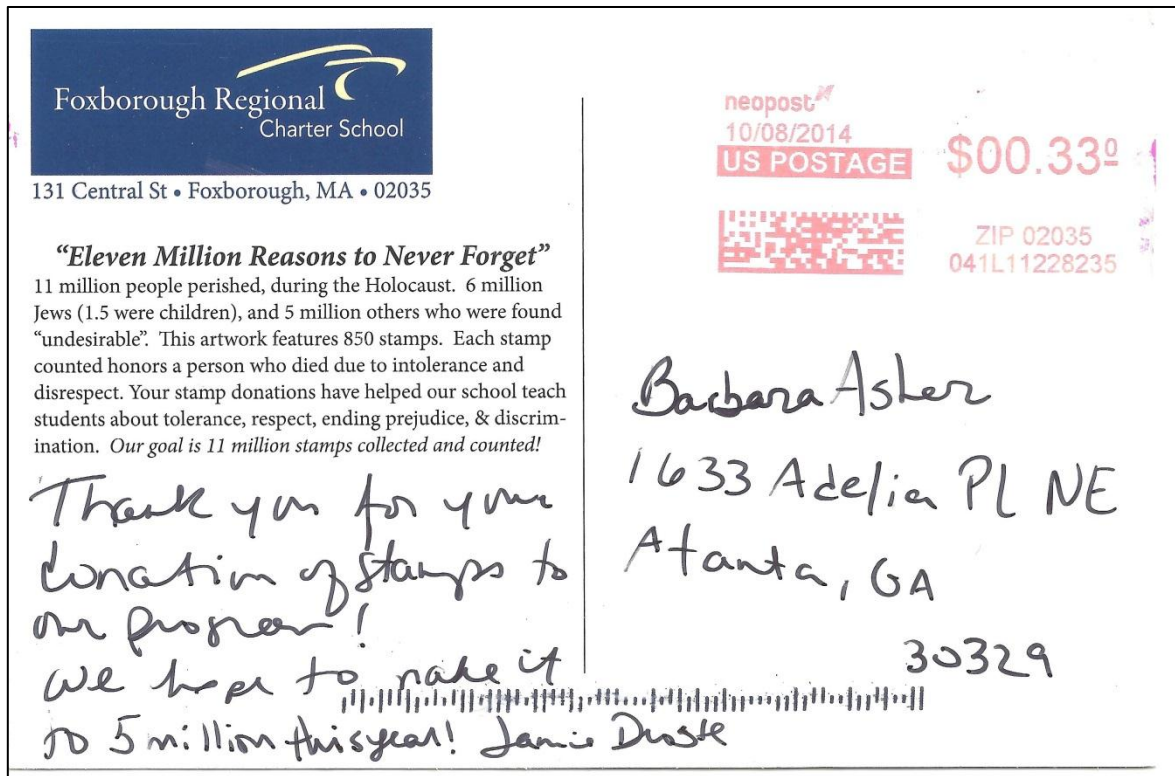 Foxborough Regional
Charter School
131 Central St • Foxborough, MA • 02035
“Eleven Million Reasons to Never Forget”
11 million people perished, during the Holocaust. 6 million
Jews (1.5 were children), and 5 million others who were found
“undesirable”. This artwork features 850 stamps. Each stamp
counted honors a person who died due to intolerance and
disrespect. Your stamp donations have helped our school teach
students about tolerance, respect, ending prejudice, & discrim-
ination. Our goal is 11 million stamps collected and counted!
Thank you for your
donation of stamps to
our program!
We hope to make it
to 5 million this year! Jamie Droste
neopost
10/08/2014
US POSTAGE
$00.33⁰
ZIP 02035
041L11228235
Barbara Asher
1633 Adelia Pl NE
Atanta, GA
30329